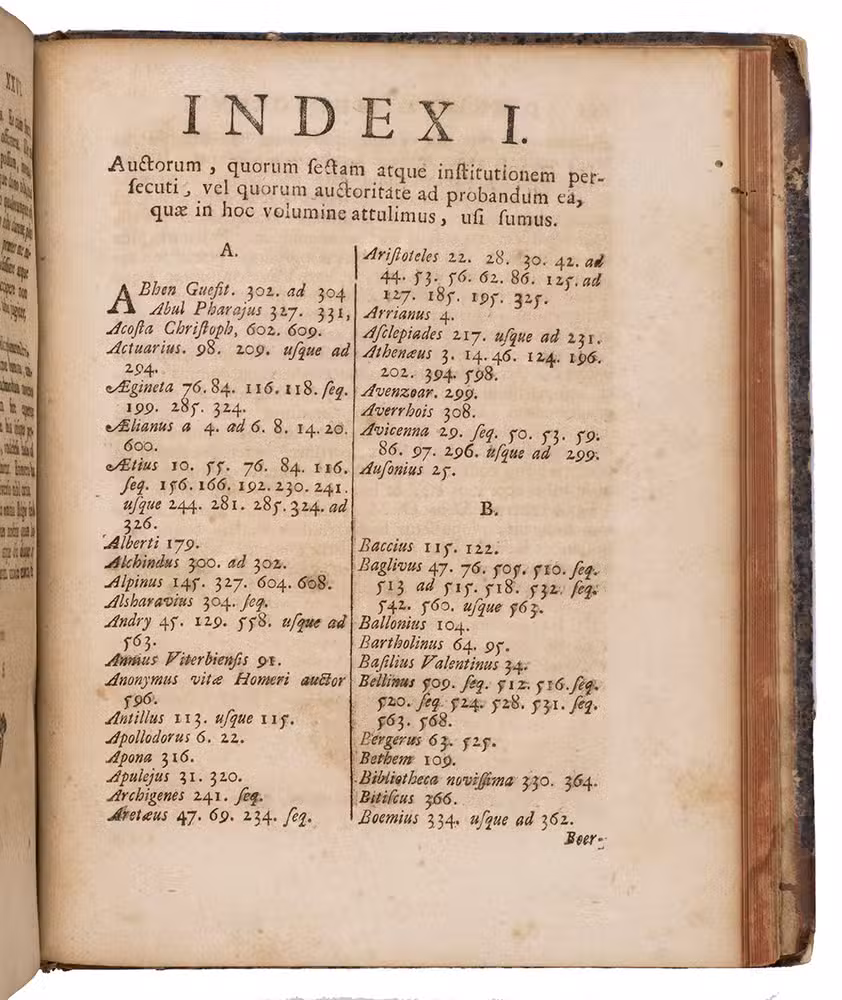 INDEX I.
Auctorum, quorum sectam atque institutionem per-
secuti, vel quorum auctoritate ad probandum ea,
quæ in hoc volumine attulimus, usi sumus.
A.
ABhen Guefit. 302. ad 304
Abul Pharajus 327. 331,
Acosta Christoph, 602. 609.
Actuarius. 98. 209. usque ad
294.
Ægineta 76. 84. 116. 118. seq.
199. 285. 324.
Ælianus a 4. ad 6. 8. 14. 20.
600.
Ætius 10. 55. 76. 84. 116.
seq. 156. 166. 192. 230. 241.
usque 244. 281. 285. 324. ad
326.
Alberti 179.
Alchindus 300. ad 302.
Alpinus 145. 327. 604. 608.
Alsharavius 304. seq.
Andry 45. 129. 558. usque ad
563.
Annius Viterbiensis 91.
Anonymus vitæ Homeri auctor
596.
Antillus 113. usque 115.
Apollodorus 6. 22.
Apona 316.
Apulejus 31. 320.
Archigenes 241. seq.
Aretæus 47. 69. 234. seq.
Aristoteles 22. 28. 30. 42. ad
44. 53. 56. 62. 86. 125. ad
127. 185. 195. 325.
Arrianus 4.
Asclepiades 217. usque ad 231.
Athenæus 3. 14. 46. 124. 196.
202. 394. 598.
Avenzoar. 299.
Averrhois 308.
Avicenna 29. seq. 50. 53. 59.
86. 97. 296. usque ad 299.
Ausonius 25.
B.
Baccius 115. 122.
Baglivus 47. 76. 505. 510. seq.
513 ad 515. 518. 532. seq.
542. 560. usque 563.
Ballonius 104.
Bartholinus 64. 95.
Basilius Valentinus 34.
Bellinus 509. seq. 512. 516. seq.
520. seq. 524. 528. 531. seq.
563. 568.
Bergerus 63. 525.
Bethem 109.
Bibliotheca novissima 330. 364.
Bitiscus 366.
Boemius 334. usque ad 362.
Boer-